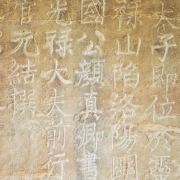 太子即位於靈
祿山陷洛陽明
國公顏真卿書
光祿大夫前行
官元結撰